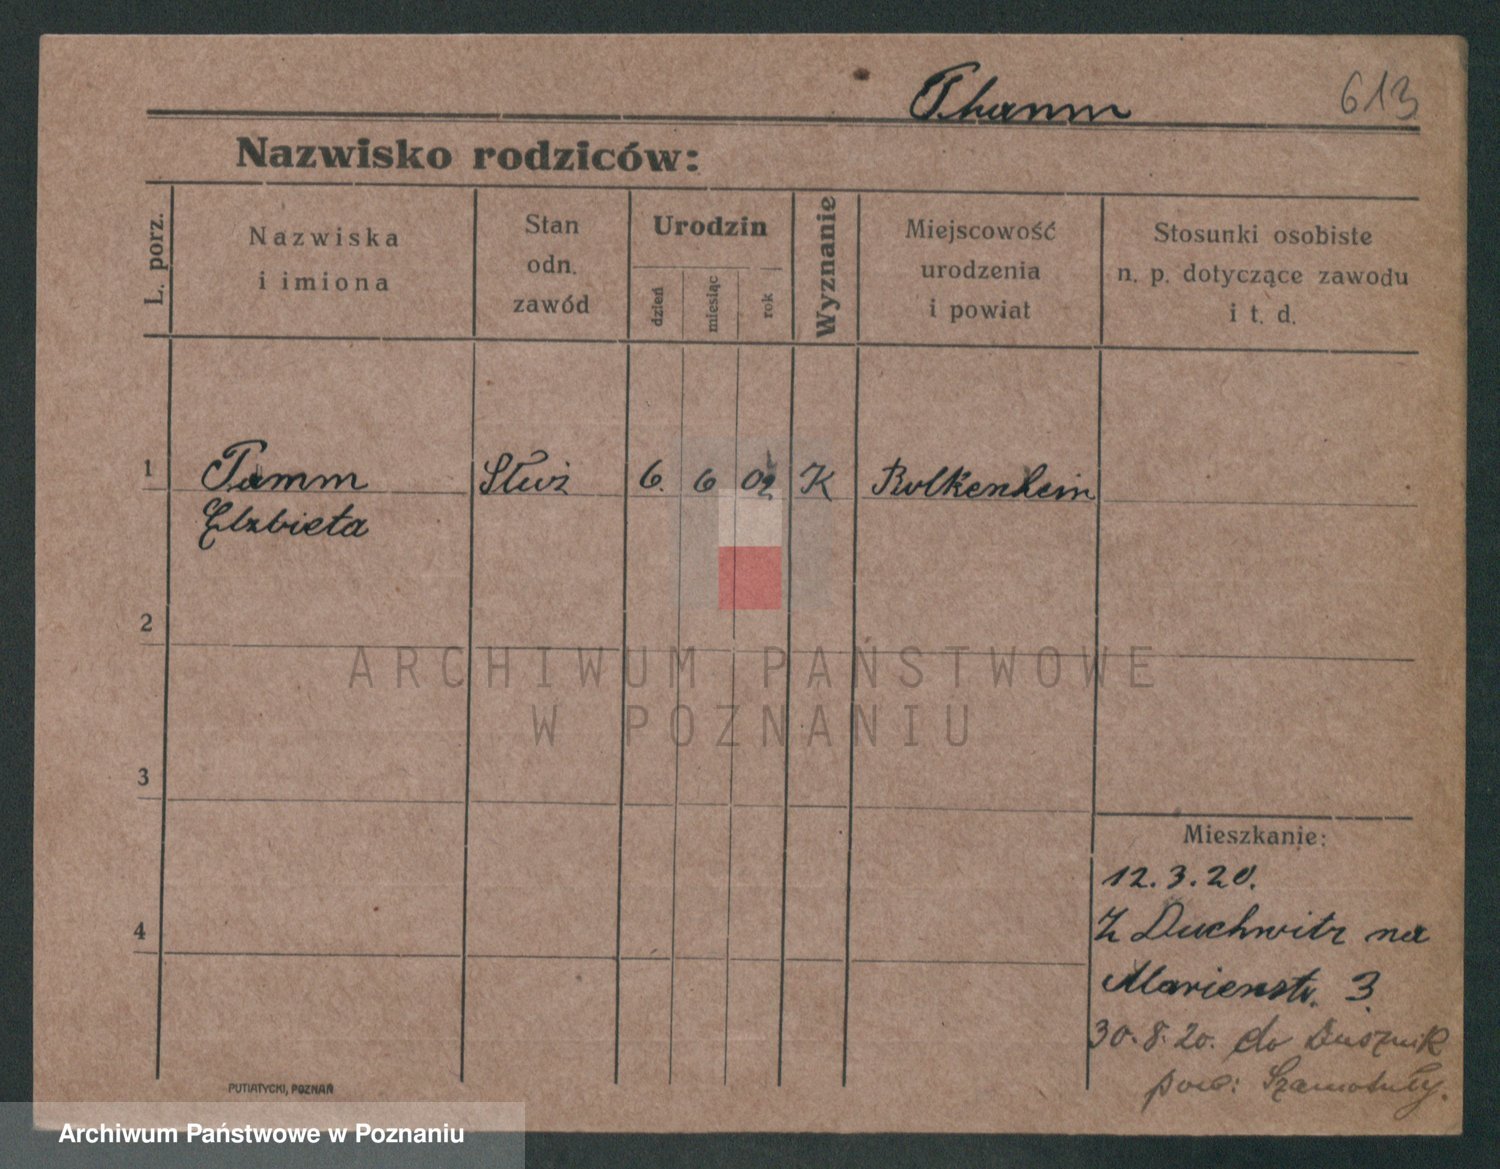 Thamm
613
Nazwisko rodziców:
L. porz.
Nazwiska
i imiona
Stan
odn.
zawód
Urodzin
dzień
miesiąc
rok
Wyznanie
Miejscowość
urodzenia
i powiat
Stosunki osobiste
n. p. dotyczące zawodu
i t. d.
1
Tamm
Elzbieta
Służ
6.
6
02
K
Bolkenhein
2
ARCHIWUM PAŃSTWOWE
W POZNANIU
3
Mieszkanie:
12.3.20.
4
Z Duchwitz na
Marienstr. 3
30.8.20. do Dusznik
pow: Szamotuły.
PUTIATYCKI, POZNAŃ
Archiwum Państwowe w Poznaniu